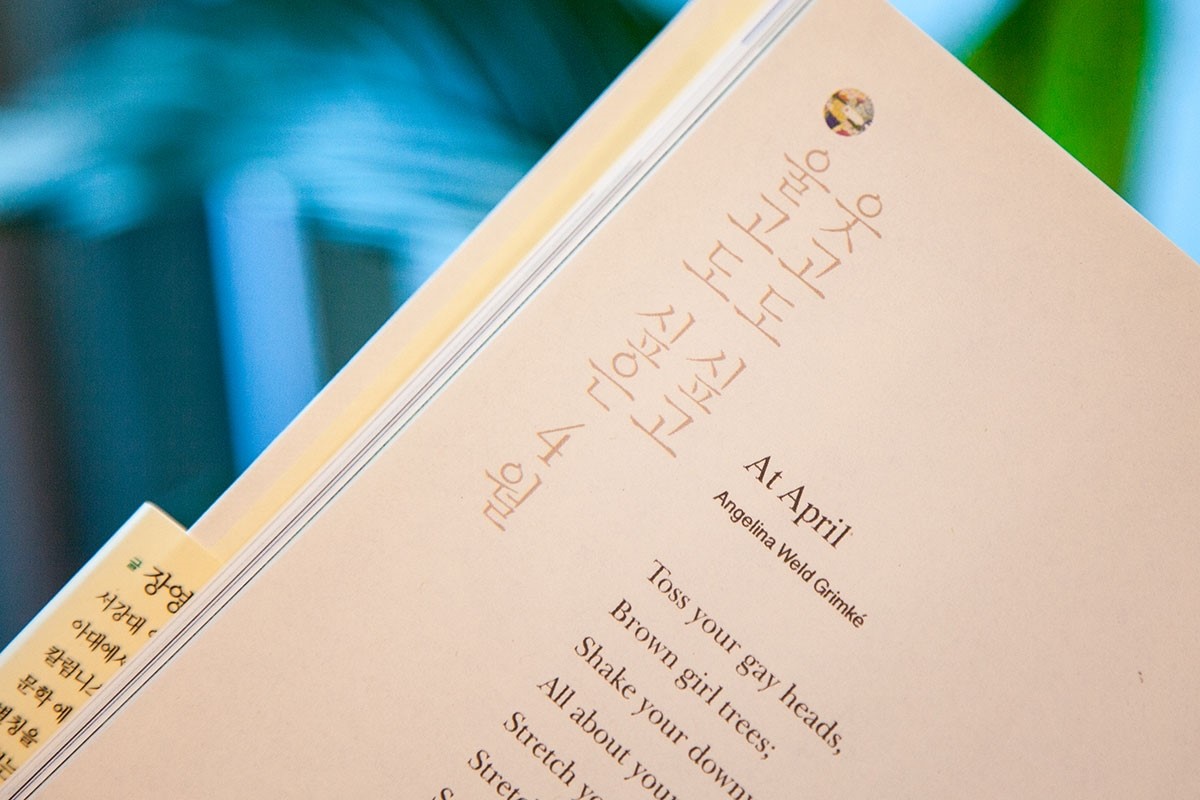 웃고도 싶고
울고도 싶은 4월
At April
Angelina Weld Grimké
Toss your gay heads,
Brown girl trees;
Shake your
All about your
Stretch
글 장영
서강대
아대에서
칼럼니스
문학 에